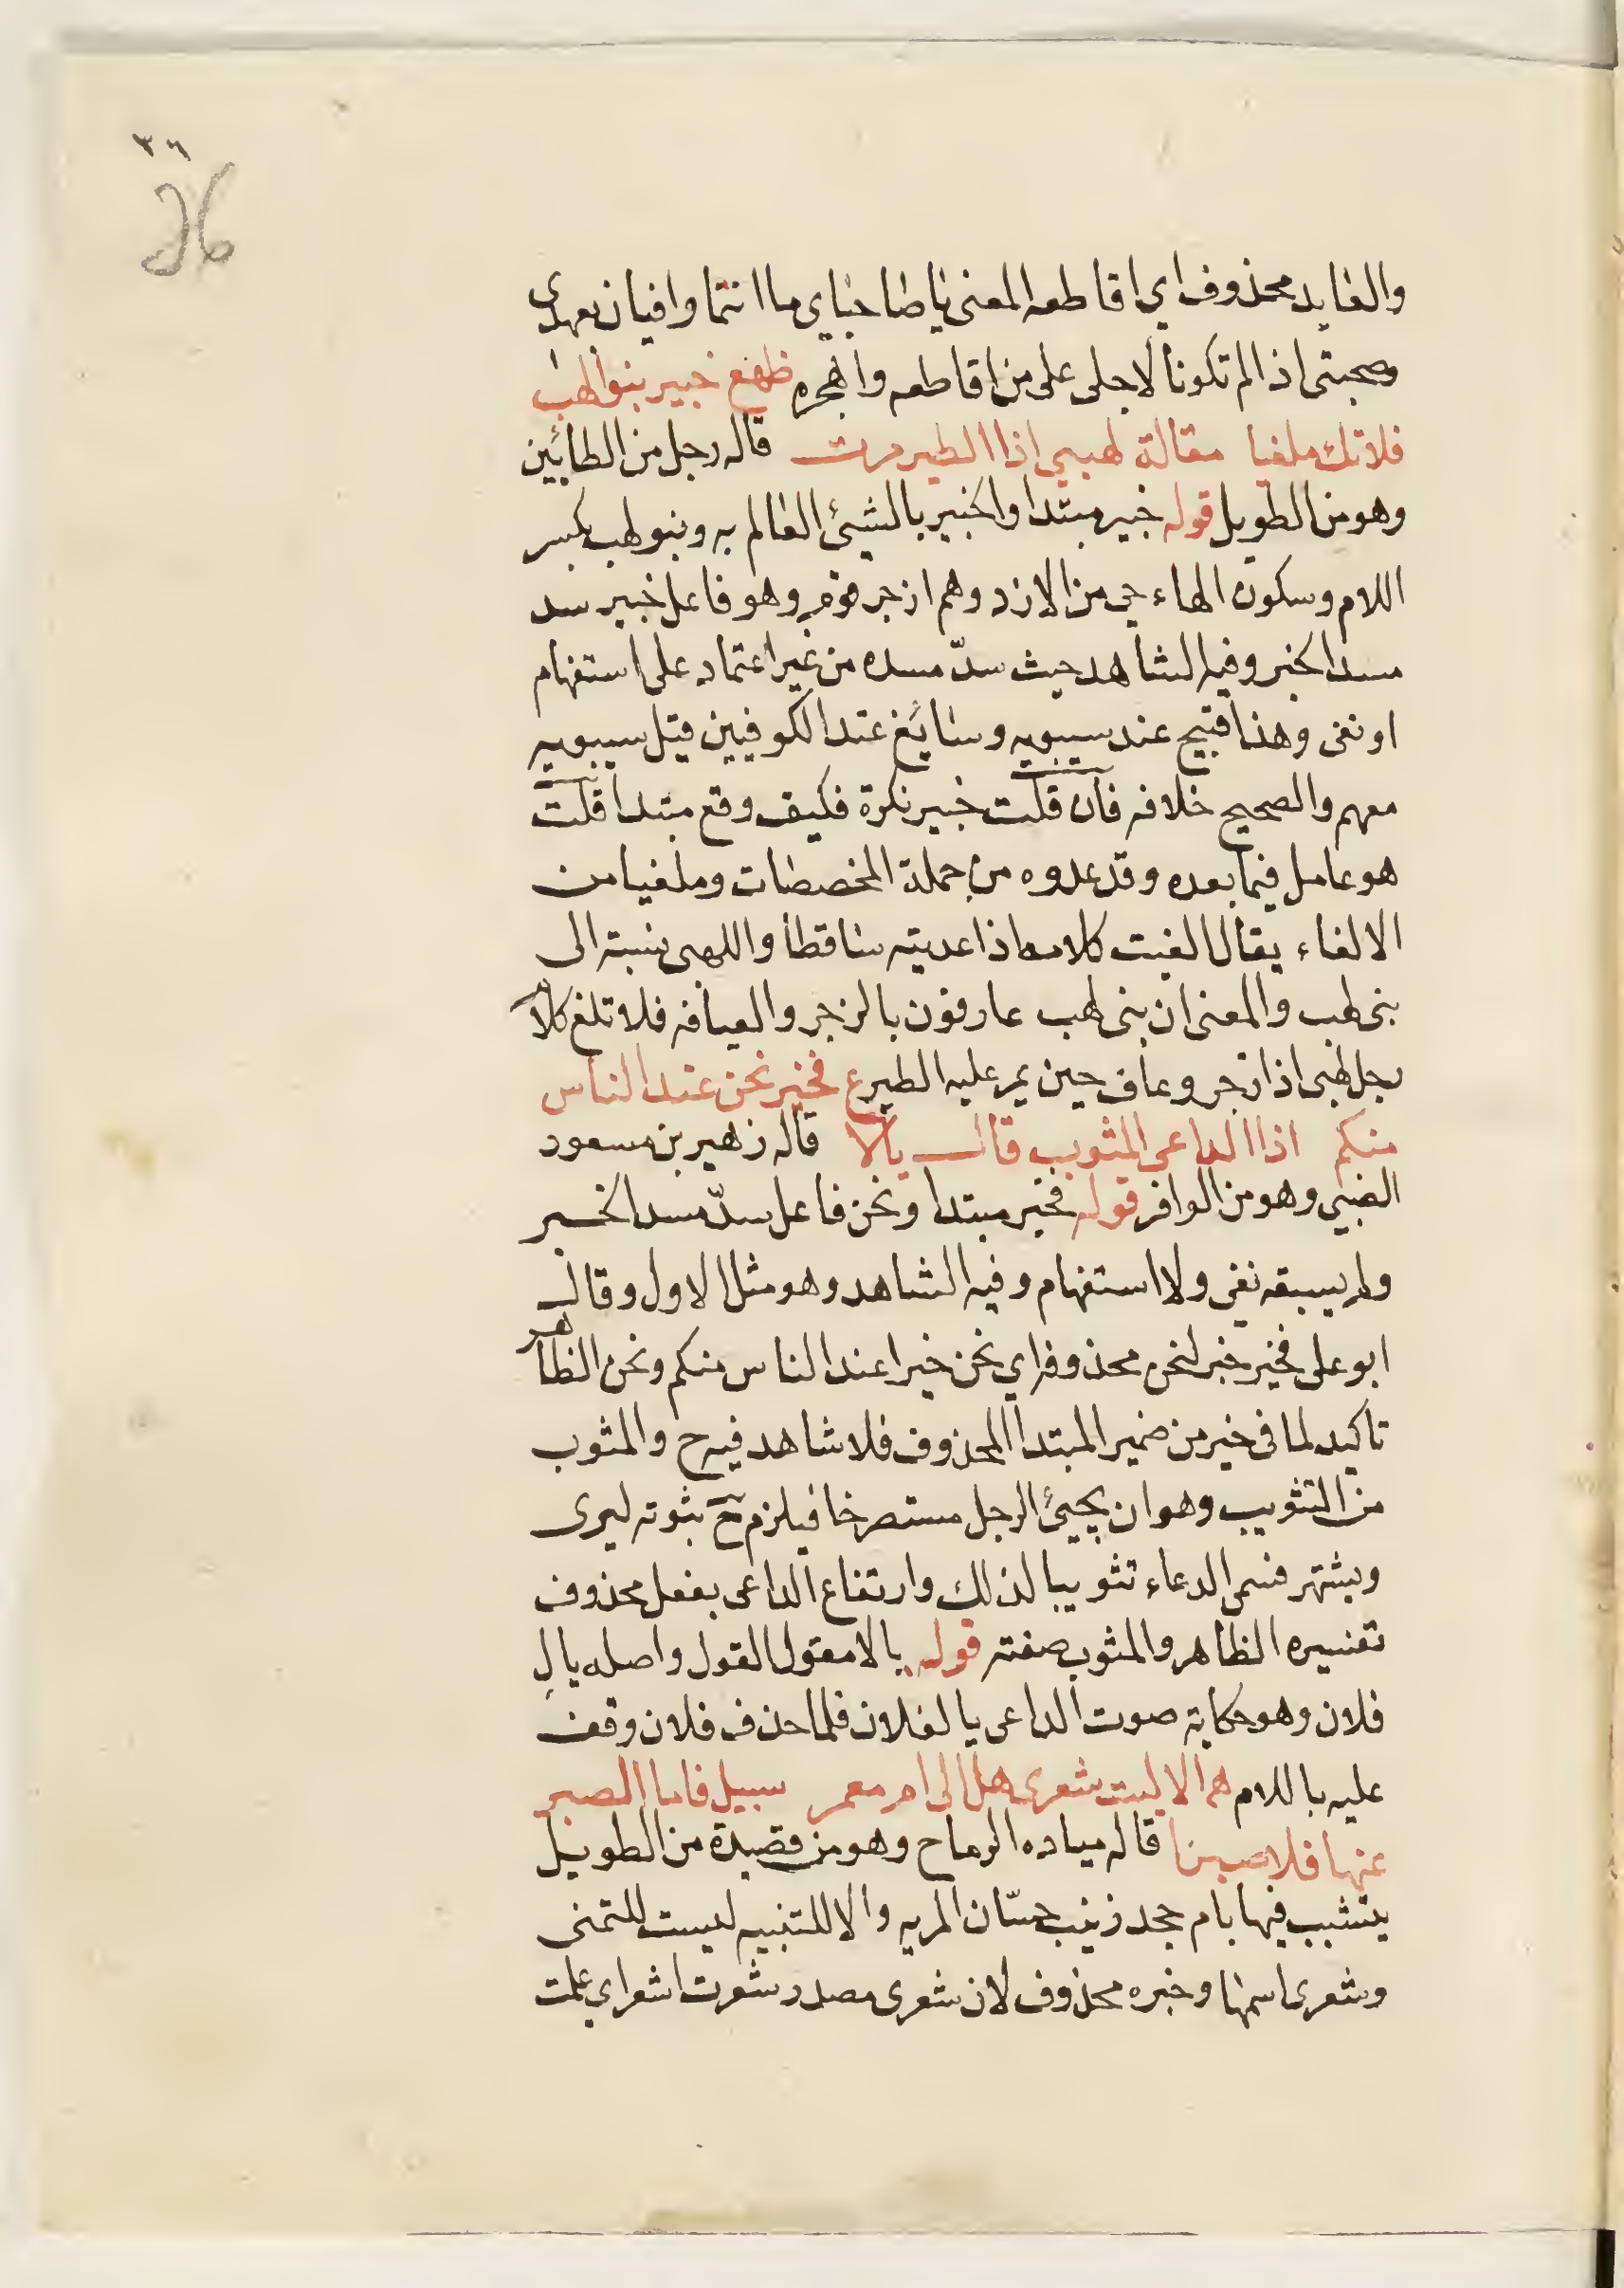 ٣٦
36
والعايد محذوف اي اقاطعه المعنى يا صاحباي ما انتما وافيان بعهدي
وصحبتي اذا لم تكونا لاجلي على من اقاطعه واهجره ظهع خبير بنو لهب
فلاتك ملغيا مقالة لهبي اذا الطير مرت قاله رجل من الطائين
وهو من الطويل قوله خبير مبتدا والخبير بالشئ العالم به وبنو لهب بكسر
اللام وسكون الهاء حي من الازد وهم ازجر قوم وهو فاعل خبير سد
مسد الخبر وفيه الشاهد حيث سدّ مسده من غير اعتماد على استفهام
او نفى وهذا قبيح عند سيبويه وسايغ عند الكوفيين قيل سيبويه
معهم والصحيح خلافه فان قلت خبير نكرة فكيف وقع مبتدا قلت
هو عامل فيما بعده وقد عدوه من جملة المخصصات وملغيا من
الالغاء يقال الغيت كلامه اذا عديته ساقطا واللهبى نسبة الى
بنى لهب والمعنى ان بنى لهب عارفون بالزجر والعيافه فلا تلغ كلام
رجل لهبى اذا زجر وعاف حين يمر عليه الطير ع فخير نحن عند الناس
منكم اذا الداعى المثوب قال يالا قاله زهير بن مسعود
الضبي وهو من الوافر قوله فخير مبتدا ونحن فاعل سدّ مسد الخبر
ولم يسبقه نفى ولا استفهام وفيه الشاهد وهو مثل الاول وقال
ابو على فخير خبر لنحن محذوفه اي نحن خير عند الناس منكم ونحن الظاهر
تاكيد لما فى خير من ضمير المبتدا المحذوف فلا شاهد فيه ح والمثوب
من التثويب وهو ان يجيئ الرجل مستصرخا فيلزم ح بثوته ليرى
ويشتهر فسمى الدعاء تثويبا لذلك وارتفاع الداعى بفعل محذوف
تفسيره الظاهر والمثوب صفته قوله يالا مقول القول واصله يال
فلان وهو حكاية صوت الداعى يا لفلان فلما حذف فلان وقف
عليه باللام هم الا ليت شعرى هل الى ام معمر سبيل فاما الصبر
عنها فلا صبرا قاله مياده الرماح وهو من قصيدة من الطويل
يتشبب فيها بام جحد زينب حسّان المريه والا للتنبيه ليست للتمنى
وشعرى اسمها وخبره محذوف لان شعرى مصدر شعرت اشعر اي علمت